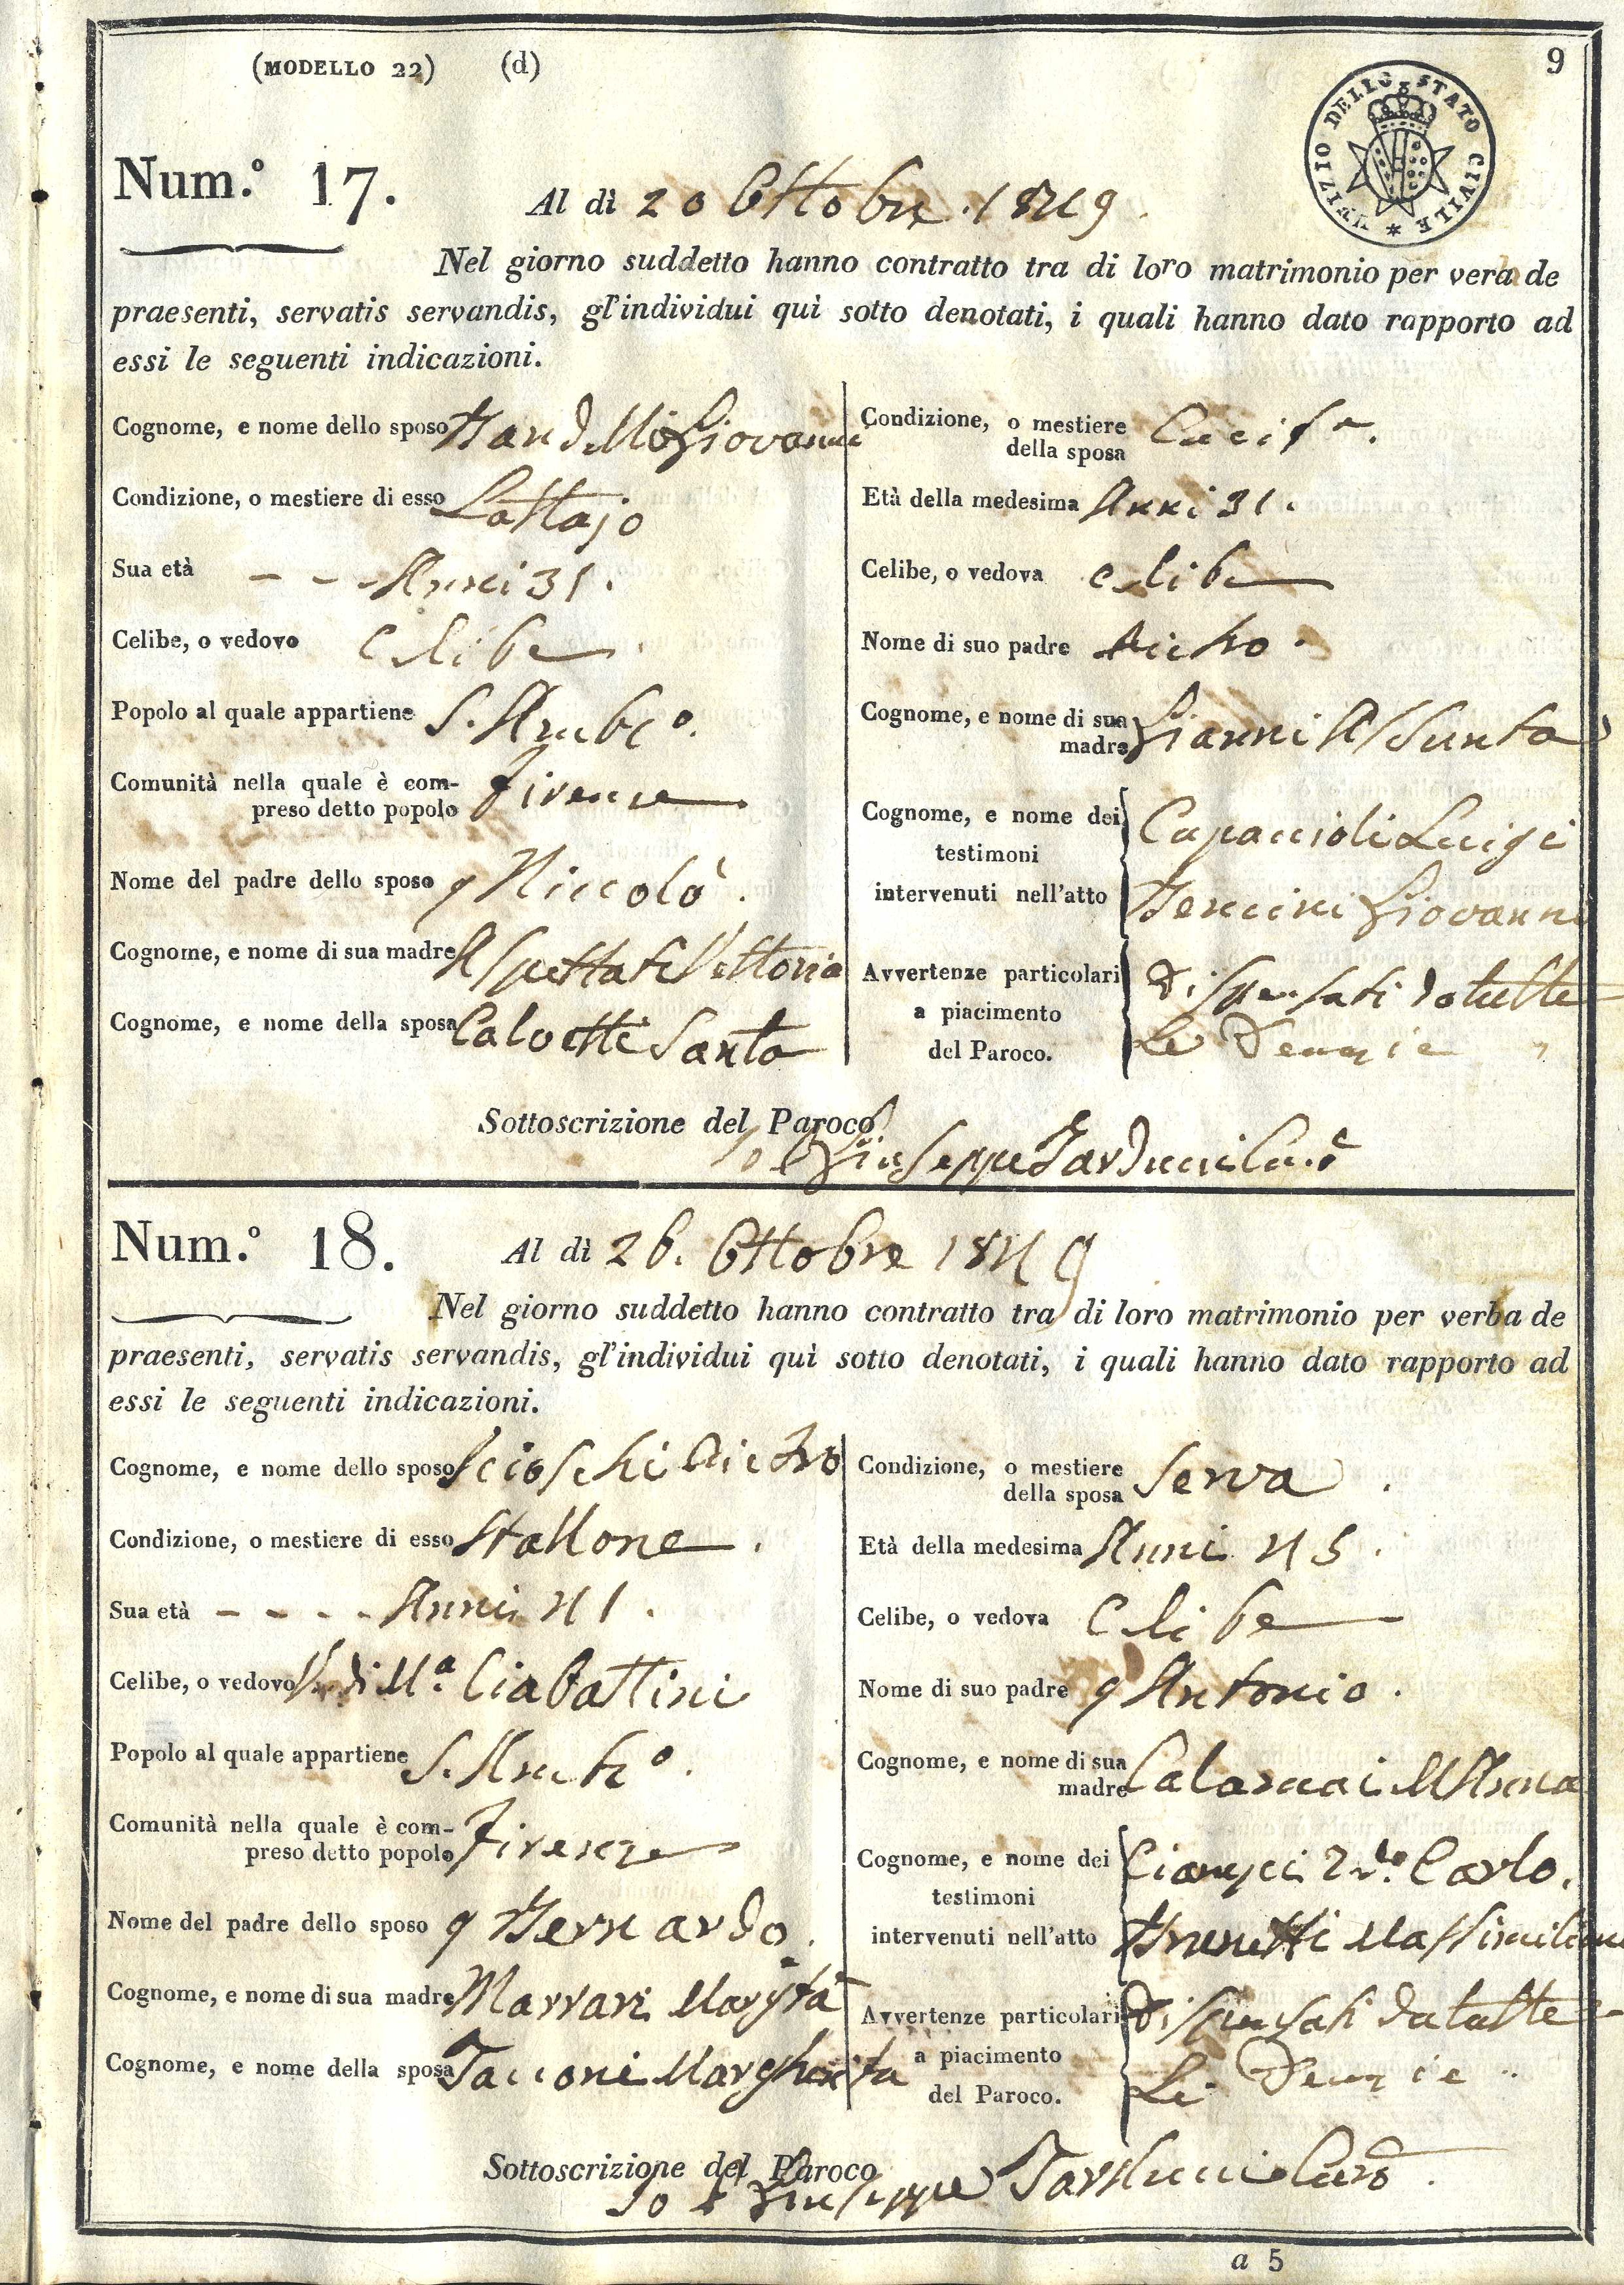 (MODELLO 22) (d) 9
UFIZIO DELLO STATO CIVILE
Num.º 17. Al dì 20 Ottobre. 1849.
Nel giorno suddetto hanno contratto tra di loro matrimonio per verba de
praesenti, servatis servandis, gl'individui quì sotto denotati, i quali hanno dato rapporto ad
essi le seguenti indicazioni.
Cognome, e nome dello sposo Giovanni
Condizione, o mestiere di esso Lattajo
Sua età - - - Anni 31.
Celibe, o vedovo Celibe.
Popolo al quale appartiene S. Ambº.
Comunità nella quale è com-
preso detto popolo Firenze
Nome del padre dello sposo q Niccolò.
Cognome, e nome di sua madre Aspettati Vittoria
Cognome, e nome della sposa Santa
Condizione, o mestiere
della sposa
Età della medesima Anni 31.
Celibe, o vedova Celibe
Nome di suo padre Pietro.
Cognome, e nome di sua
madre Gianni Assunta
Cognome, e nome dei Capaccioli Luigi
testimoni
intervenuti nell'atto Bencini Giovanni
Avvertenze particolari Dispensati da tutte
a piacimento Le Denunzie
del Paroco.
Sottoscrizione del Paroco
Io P Giuseppe Tarducci Curº
Num.º 18. Al dì 26. Ottobre 1849
Nel giorno suddetto hanno contratto tra di loro matrimonio per verba de
praesenti, servatis servandis, gl'individui quì sotto denotati, i quali hanno dato rapporto ad
essi le seguenti indicazioni.
Cognome, e nome dello sposo Pietro
Condizione, o mestiere di esso Stallone.
Sua età - - - - Anni 41.
Celibe, o vedovo V. di Mª. Ciabattini
Popolo al quale appartiene S. Ambº.
Comunità nella quale è com-
preso detto popolo Firenze
Nome del padre dello sposo q Bernardo.
Cognome, e nome di sua madre Marrari Margta
Cognome, e nome della sposa Tacconi Margherita
Condizione, o mestiere
della sposa Serva.
Età della medesima Anni 45.
Celibe, o vedova Celibe
Nome di suo padre q Antonio.
Cognome, e nome di sua
madre Calamai M Anna
Cognome, e nome dei Ciampi Carlo.
testimoni
intervenuti nell'atto Brunetti Massimiliano
Avvertenze particolari Dispensati da tutte
a piacimento Le Denunzie
del Paroco.
Sottoscrizione del Paroco
Io P Giuseppe Tarducci Curº.
a 5